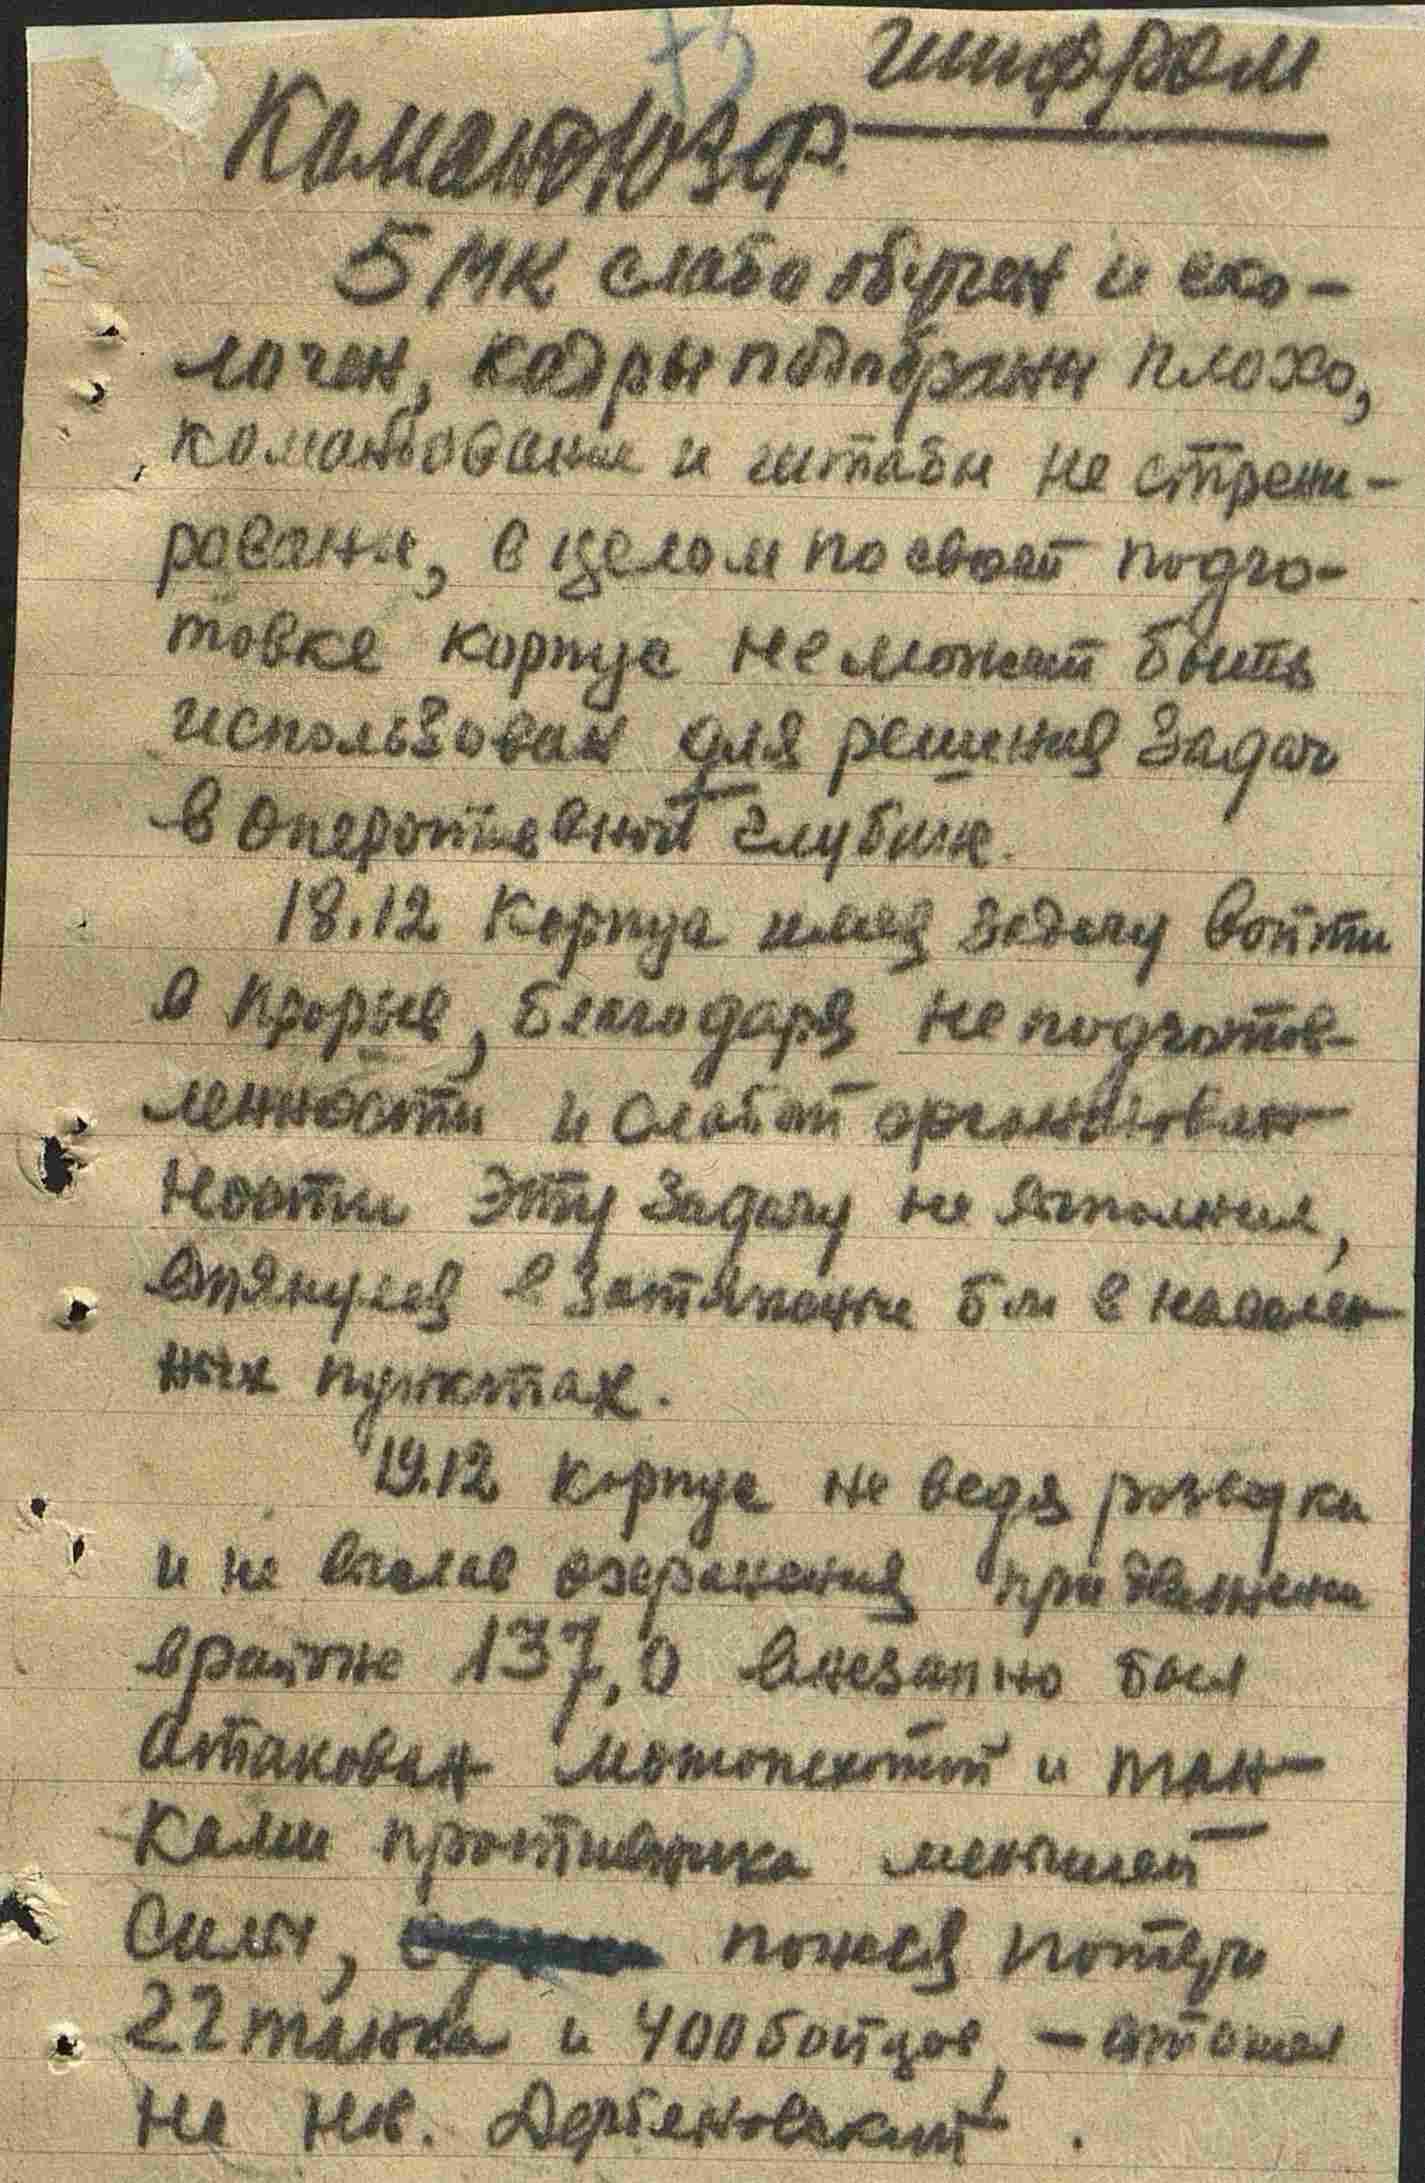 73
шифром
Команд ЮЗФ.
5 МК слабо обучен и ско-
лочен, кадры подобраны плохо,
командование и штабы не стрени-
рованы, в целом по своей подго-
товке корпус не может быть
использован для решения задач
в оперативной глубине.
18.12 Корпус имея задачу войти
в прорыв, благодаря неподготов-
ленности и слабой организован-
ности эту задачу не выполнил,
втянулся в затяжные бои в населен-
ных пунктах.
19.12 корпус не ведя разведки
и не выслав охранения при движении
в районе 137,0 внезапно был
атакован мотопехотой и тан-
ками противника меньшей
силы, понеся потери
22 танка и 400 бойцов, - отошел
на Нов. Дербеновский.